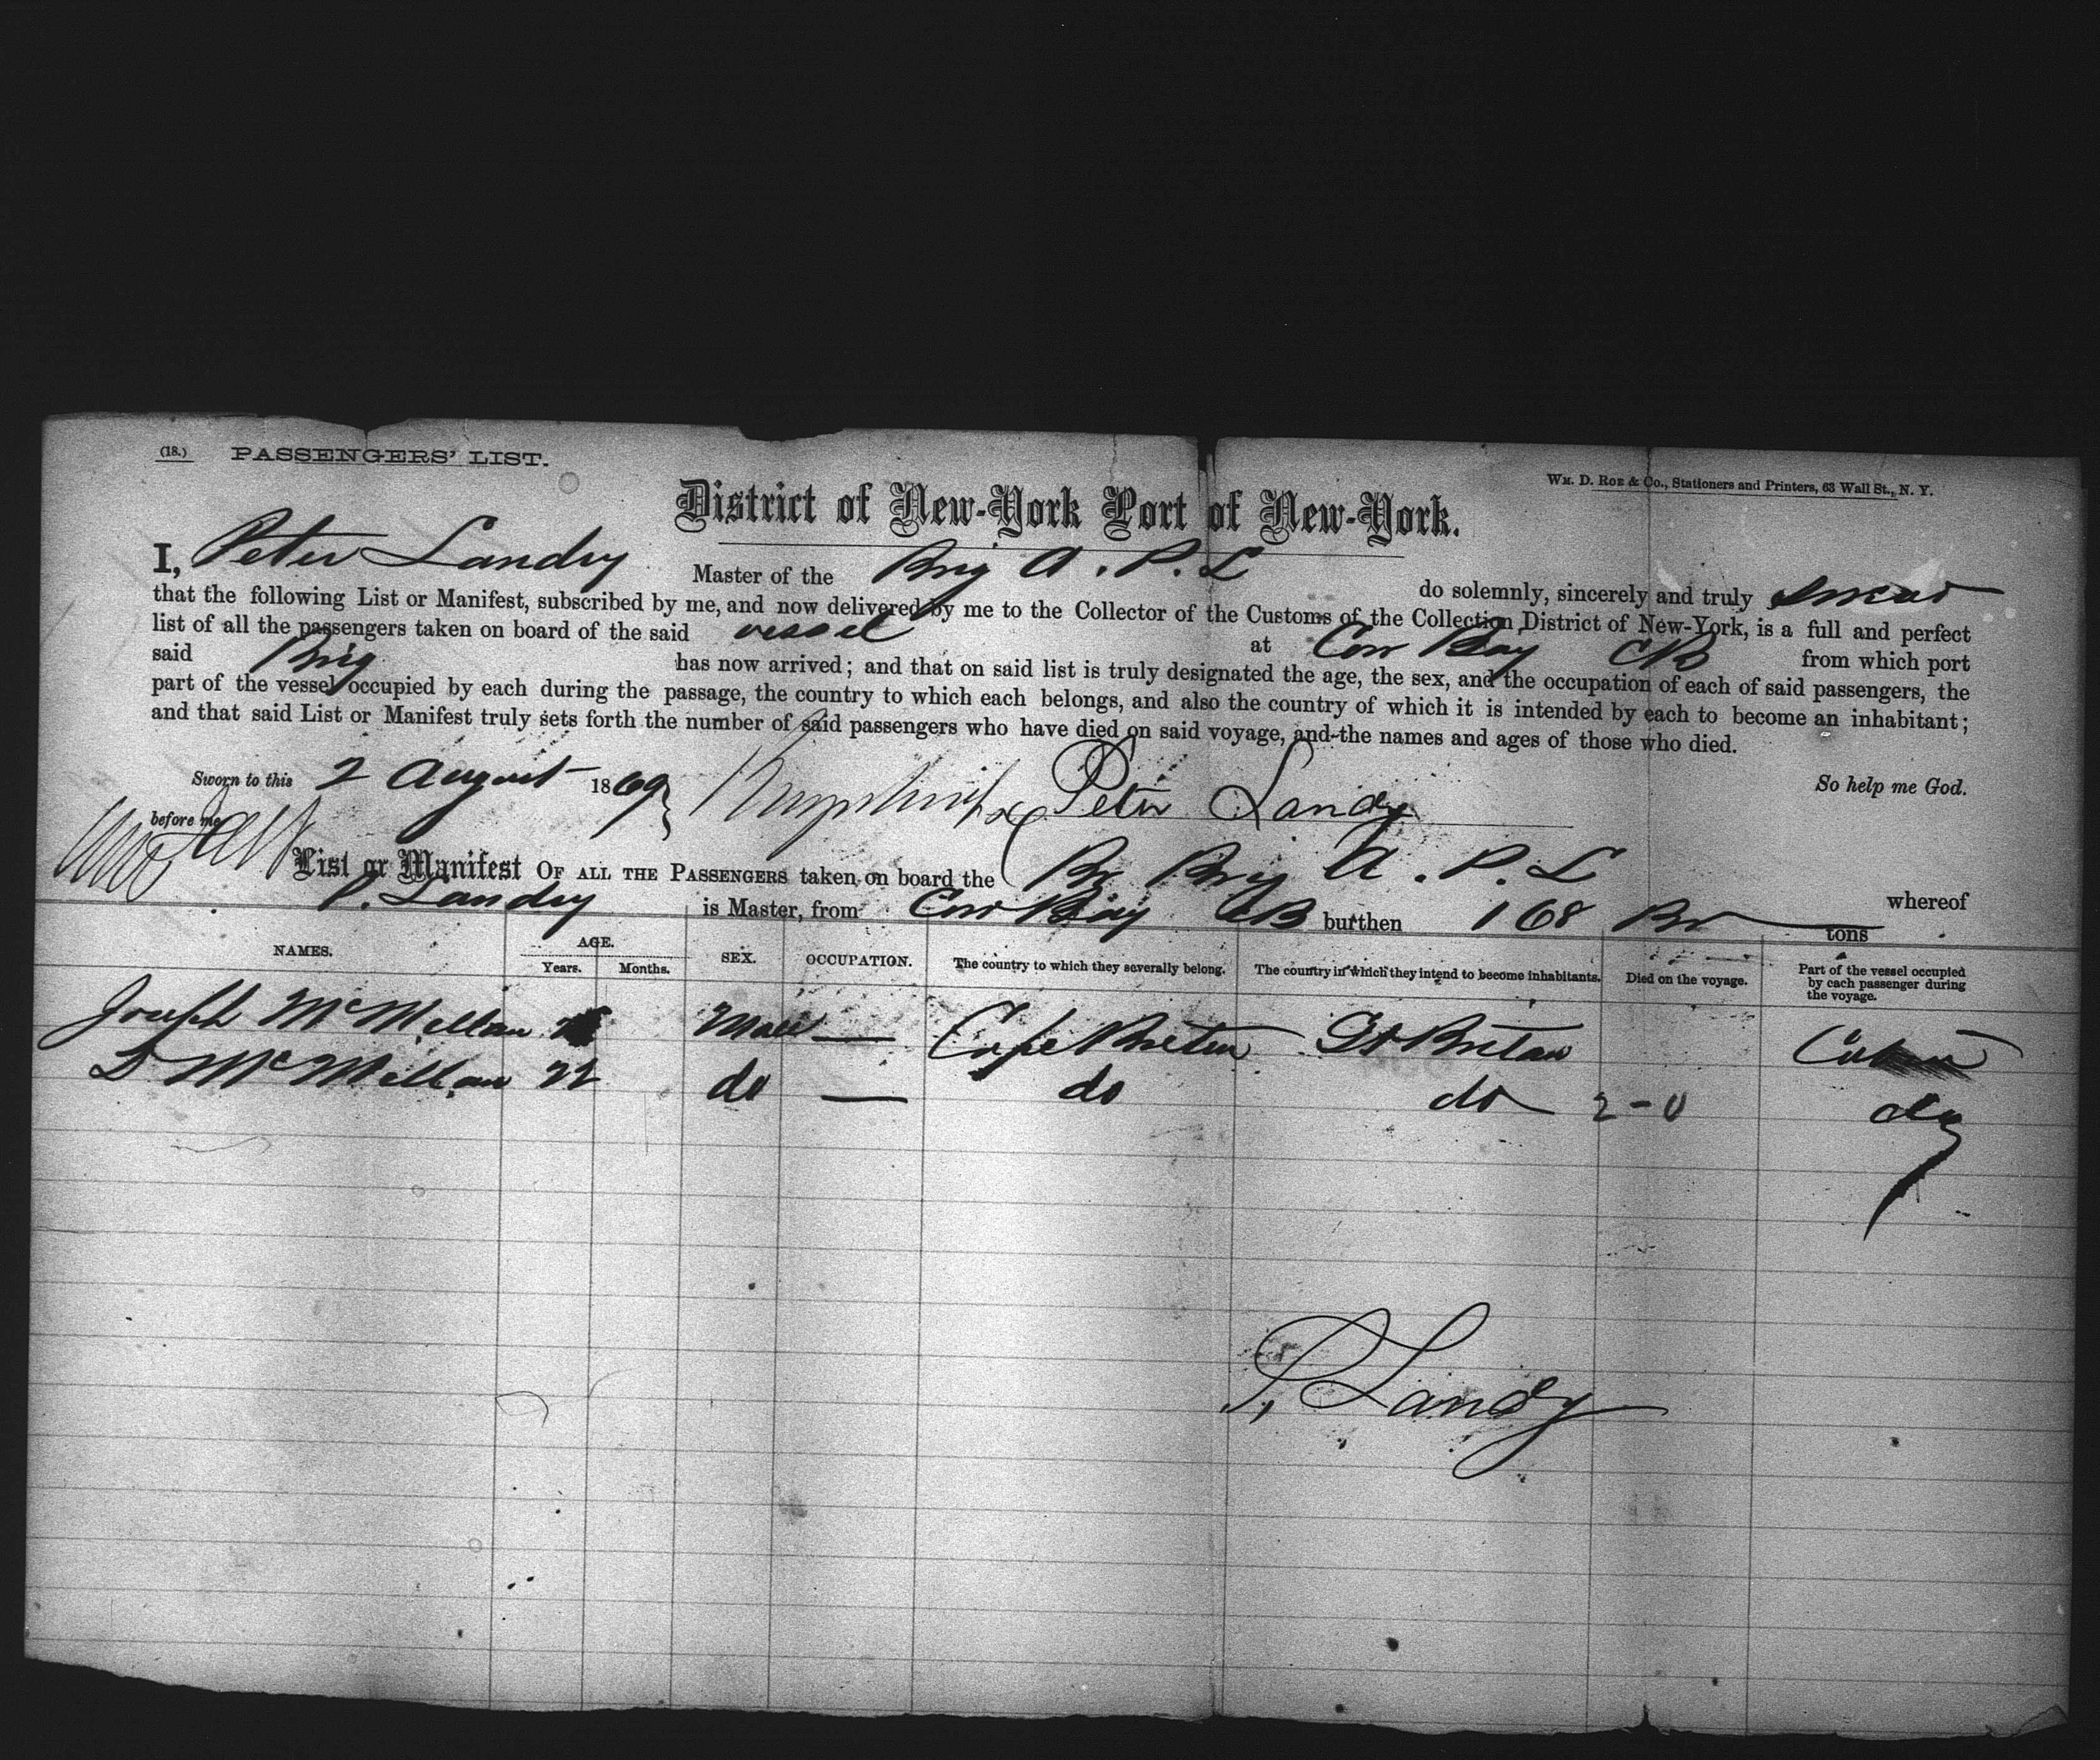 (18.) PASSENGERS' LIST.
Wm. D. Roe & Co., Stationers and Printers, 63 Wall St., N. Y.
District of New-York Port of New-York.
I, Peter Landry Master of the Brig A. P. L do solemnly, sincerely and truly swear
that the following List or Manifest, subscribed by me, and now delivered by me to the Collector of the Customs of the Collection District of New-York, is a full and perfect
list of all the passengers taken on board of the said vessel at Cow Bay CB from which port
said Brig has now arrived; and that on said list is truly designated the age, the sex, and the occupation of each of said passengers, the
part of the vessel occupied by each during the passage, the country to which each belongs, and also the country of which it is intended by each to become an inhabitant;
and that said List or Manifest truly sets forth the number of said passengers who have died on said voyage, and the names and ages of those who died.
So help me God.
Sworn to this 2 August 1869 Peter Landry
before me
List or Manifest OF ALL THE PASSENGERS taken on board the Br Brig A. P. L whereof
P. Landry is Master, from Cow Bay CB burthen 168 Br tons
NAMES. AGE. Years. Months. SEX. OCCUPATION. The country to which they severally belong. The country in which they intend to become inhabitants. Died on the voyage. Part of the vessel occupied by each passenger during the voyage.
Joseph McMillan Male — Cape Breton Gt Britan Cabin
D McMillan 22 do — do do 2-0 do
P, Landry